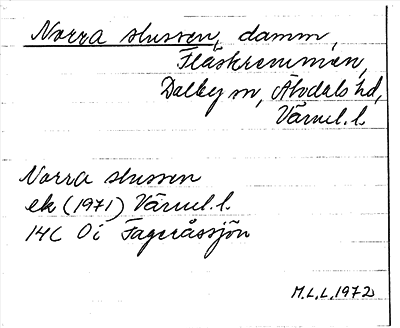 Norra slussen, damm,
Fläskremmen,
Dalby sn, Älvdals hd,
Värml. l.
Norra slussen
ek (1971) Värml. l.
14C Oi Fageråssjön
M.L.L. 1972